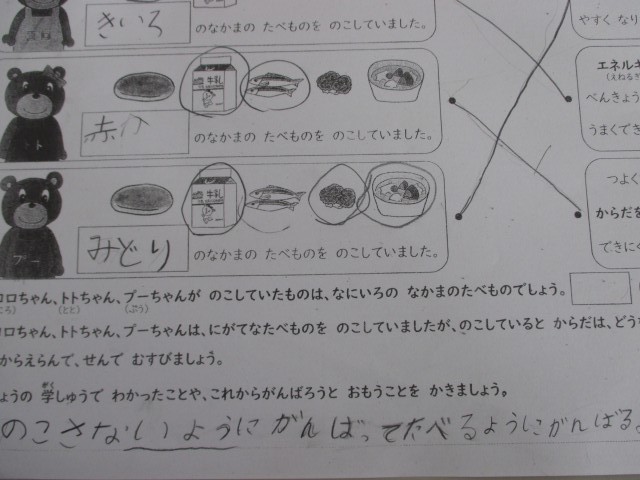 きいろ のなかまの たべものを のこしていました。
やすく なり
牛乳
エネルギ
(えねるぎ
べんきょう
うまくでき
ト
赤
のなかまの たべものを のこしていました。
牛乳
つよく
からだを
できにく
プー
みどり のなかまの たべものを のこしていました。
ロちゃん、トトちゃん、プーちゃんが のこしていたものは、なにいろの なかまのたべものでしょう。
ろ) (とと) (ぷう)
ロちゃん、トトちゃん、プーちゃんは、にがてなたべものを のこしていましたが、のこしていると からだは、どう
からえらんで、せんで むすびましょう。
がく
ょうの 学しゅうで わかったことや、これからがんばろうと おもうことを かきましょう。
のこさないようにがんばってたべるようにがんばる。